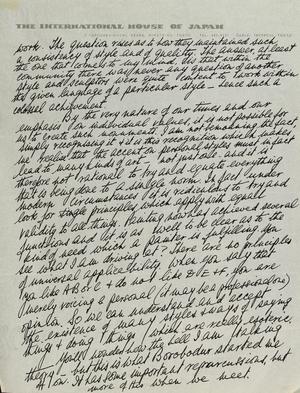 THE INTERNATIONAL HOUSE OF JAPAN
work. The question rises as to how they maintained such
a consistency of style and of quality. The answer, at least
the one that comes to my mind, is that within the
community there was never any question of another
style and sculptors were quite content to work within
the given language of a particular style – hence such a
colossal achievement.
By the very nature of our times and our
emphasis on individual values, it is not possible for
us to create such monuments. I am not bemoaning the fact
simply recognising it & it is this recognition which makes
me realise that the accent on personal styles must
lead to many kinds of art – not just one. And it is
therefore not rational to try and equate everything
that is being done to a single norm. In fact under
modern circumstances it is ridiculous to try and
look for single principles which apply with equal
validity to all things. Painting now has achieved several
functions and let us as well to be clear as to the
kind of need which a painter is fulfilling. You
see what I am driving at; there are no principles
of universal applicability; when you say that
you like A B or C & do not like D E & F, you are
merely voicing a personal (it may be a professional one)
opinion. So we can understand and accept
the existence of many styles & ways of saying
things & doing things which are really esoteric.
You'll wonder how the hell I am talking
theory – but this is what Borobodur started me
off on. It has some important repercussions, but
more of this when we meet.